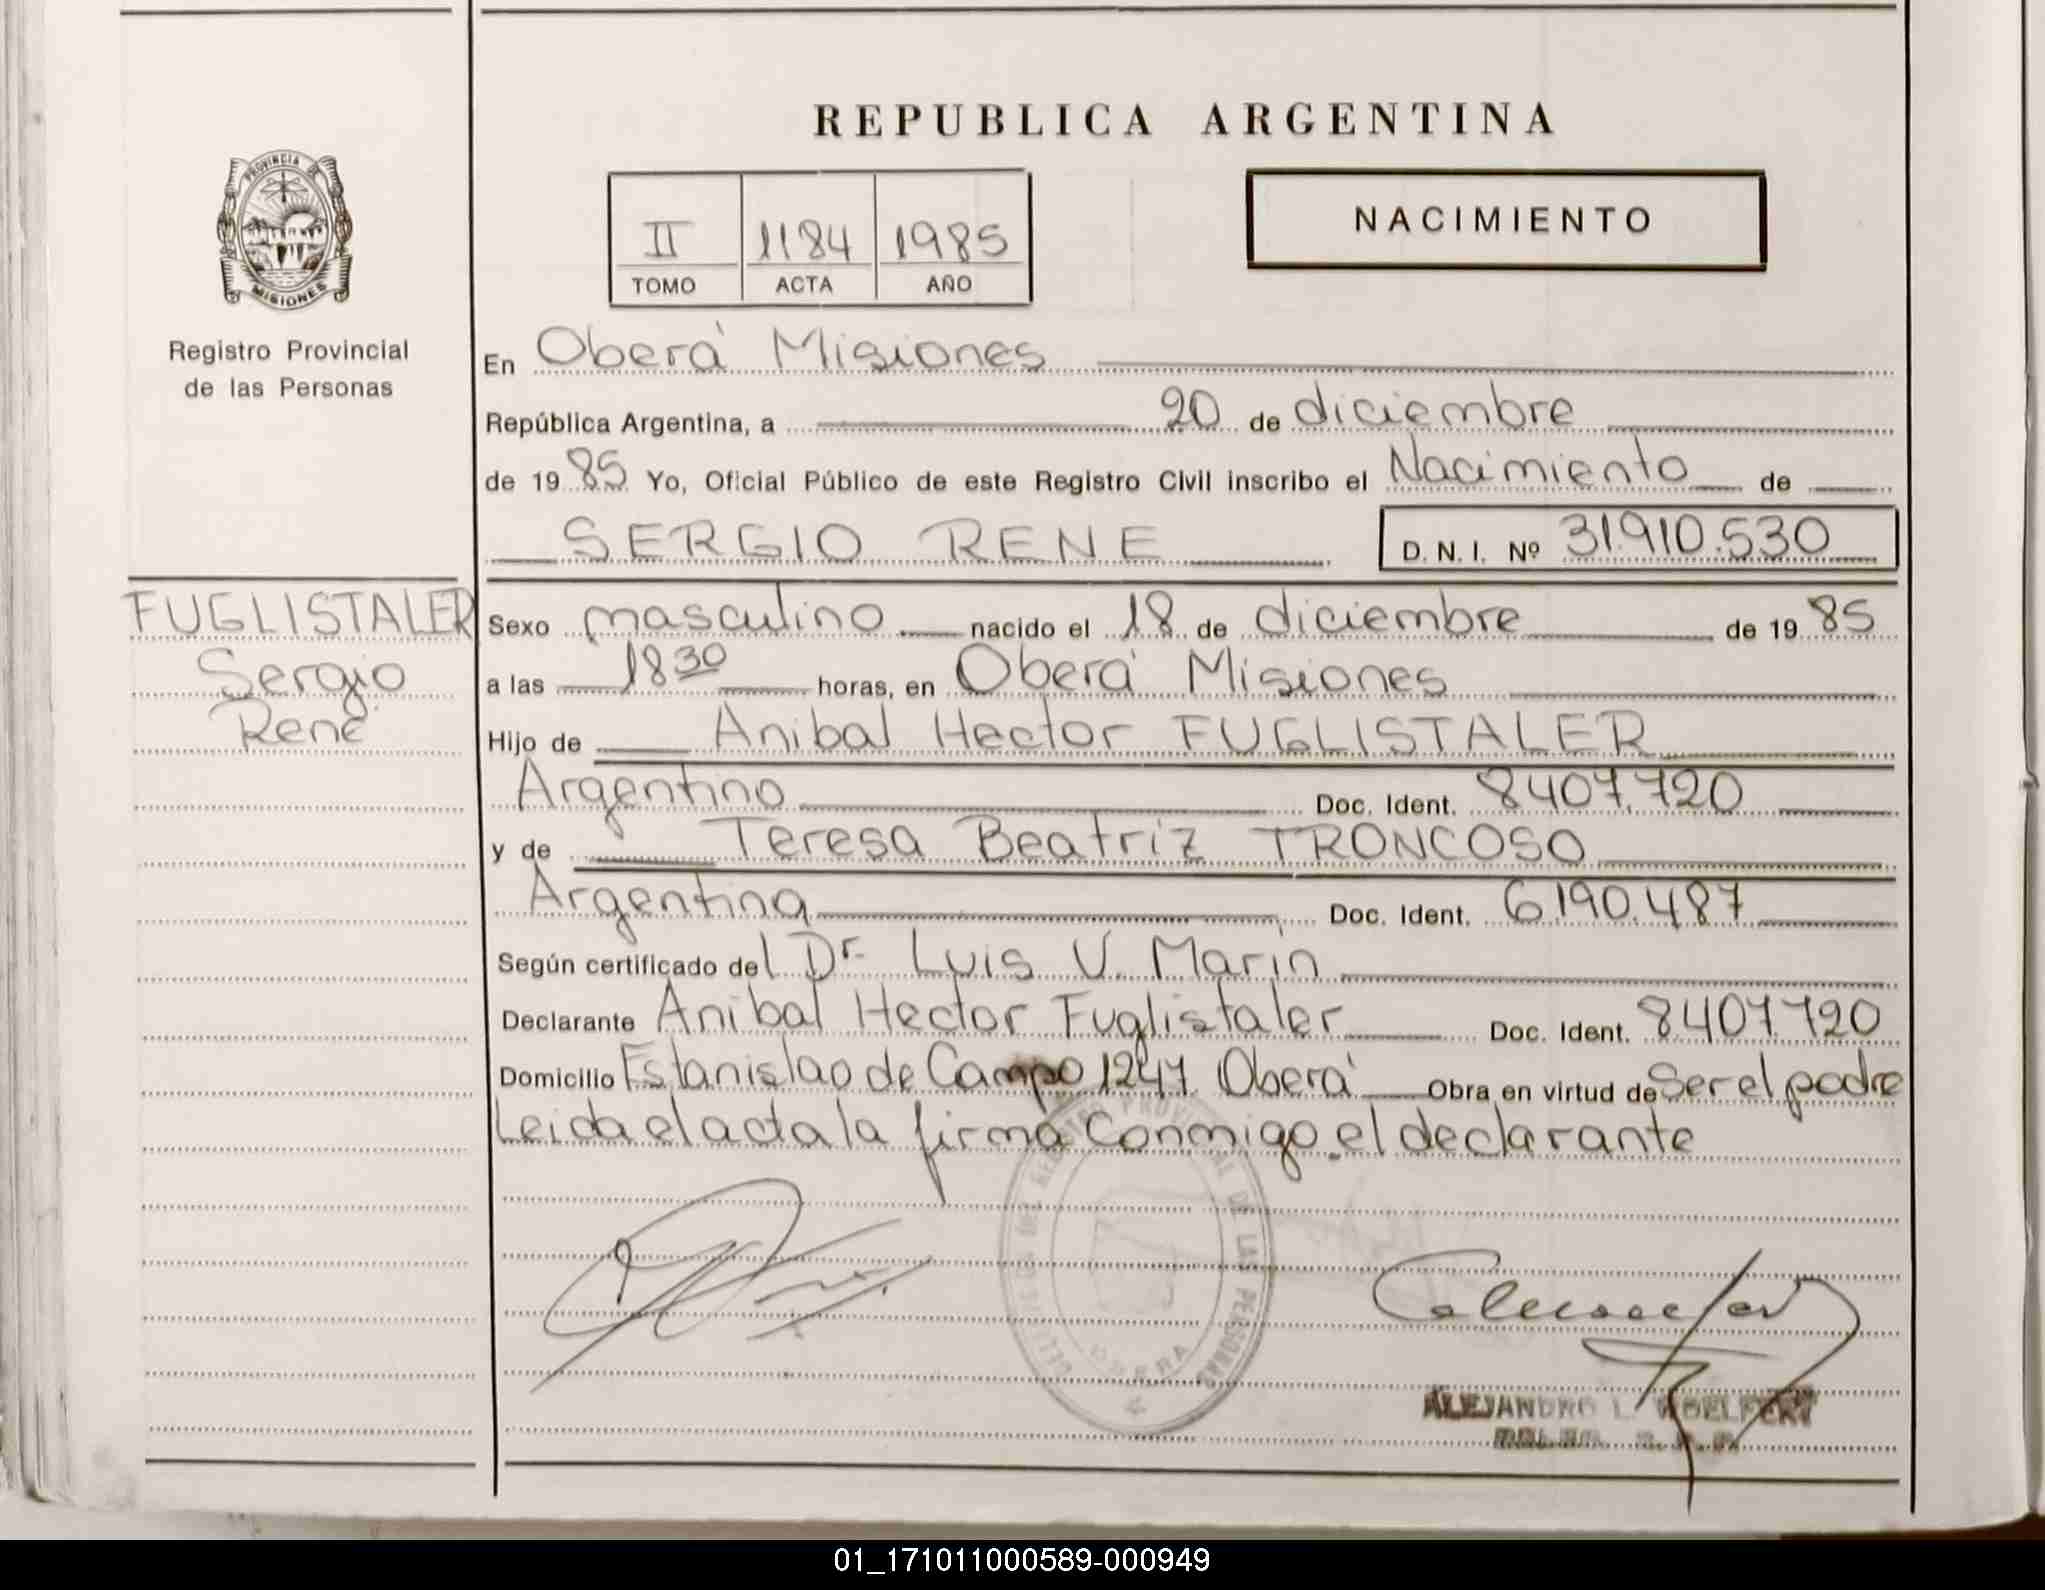 REPUBLICA ARGENTINA
PROVINCIA DE
MISIONES
Registro Provincial
de las Personas
NACIMIENTO
II 1184 1985
TOMO ACTA AÑO
En Oberá Misiones
República Argentina, a 20 de diciembre
de 1985 Yo, Oficial Público de este Registro Civil inscribo el Nacimiento de
SERGIO RENE D.N.I. Nº 31.910.530
FUGLISTALER
Sergio
René
Sexo masculino nacido el 18 de diciembre de 1985
a las 18 30 horas, en Oberá Misiones
Hijo de Anibal Hector FUGLISTALER
Argentino Doc. Ident. 8407.720
y de Teresa Beatriz TRONCOSO
Argentina Doc. Ident. 6.190.487
Según certificado del Dr. Luis V. Marín
Declarante Anibal Hector Fuglistaler Doc. Ident. 8407.720
Domicilio Estanislao de Campo 1247 Oberá Obra en virtud de Ser el padre
Leida el acta la firma Conmigo el declarante
PROVINCIAL DE LAS PERSONAS
OBERA
ALEJANDRO L. WOELFERT
01_171011000589-000949